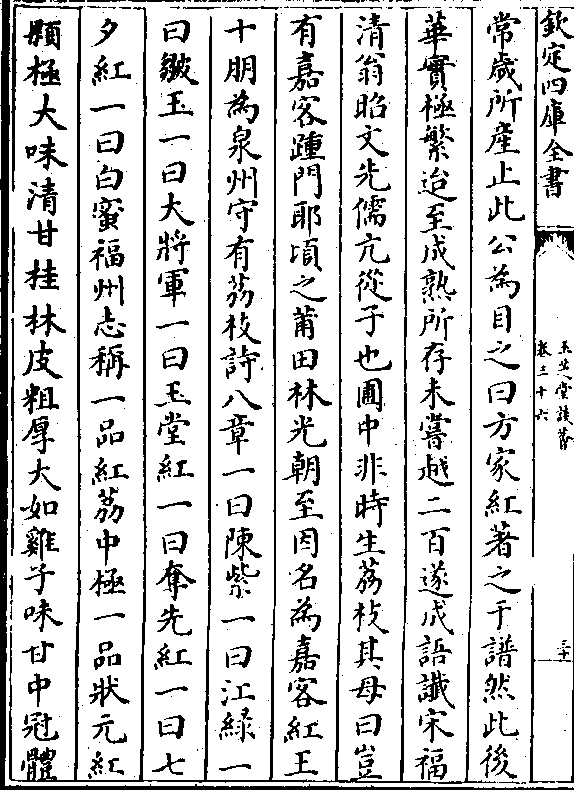 欽定四庫全書
玉芝堂談薈
卷三十六
三十
常歲所産止此公為目之曰方家紅著之于譜然此後
華實極繁迨至成熟所存未嘗越二百遂成語讖宋福
清翁昭文先儒亢從子也圃中非時生荔枝其母曰豈
有嘉客踵門耶頃之莆田林光朝至因名為嘉客紅王
十朋為泉州守有荔枝詩八章一曰陳紫一曰江緑一
曰皺玉一曰大將軍一曰玉堂紅一曰奪先紅一曰七
夕紅一曰白蜜福州志稱一品紅荔中極一品狀元紅
顆極大味清甘桂林皮粗厚大如雞子味甘中冠體